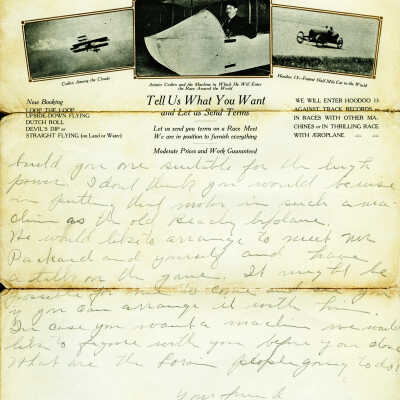 Coden Among the Clouds
Aviator Coden and the Machine in Which He Will Enter
the Race Around the World
Hoodoo 13—Fastest Half Mile Car in the World
Now Booking
LOOP THE LOOP
UPSIDE-DOWN FLYING
DUTCH ROLL
DEVIL'S DIP or
STRAIGHT FLYING (on Land or Water)
Tell Us What You Want
and Let Us Send Terms
Let us send you terms on a Race Meet
We are in position to furnish everything
Moderate Prices and Work Guaranteed
WE WILL ENTER HOODOO 13
AGAINST TRACK RECORDS,
IN RACES WITH OTHER MA-
CHINES or IN THRILLING RACE
WITH AEROPLANE
build you one suitable for the high
power. I dont think you would be wise
in putting that motor in such a ma-
chine as the old Beachy biplane.
We would like to arrange to meet Mr
Packard and yourself and have
a talk on the game. It might be
possible for me to come
if you can arrange it with him.
In case you want a machine we would
like to figure with you before you close
What are the people going to do?
Your friend